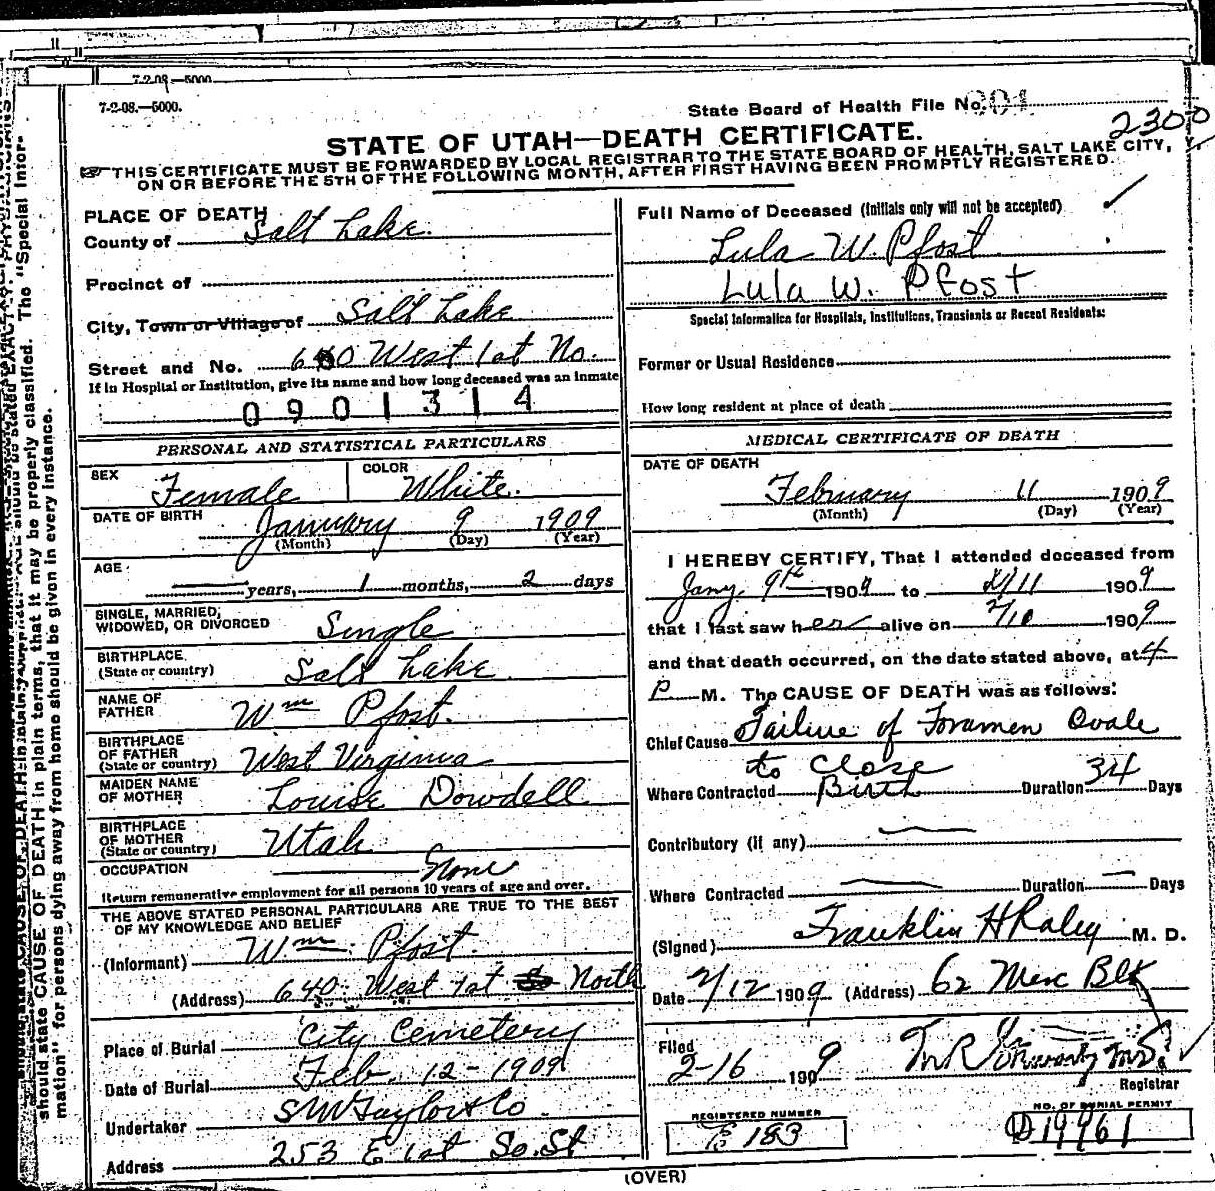 7-2-08.—5000.
7-2-08.—5000.
State Board of Health File No.
2300
STATE OF UTAH—DEATH CERTIFICATE.
THIS CERTIFICATE MUST BE FORWARDED BY LOCAL REGISTRAR TO THE STATE BOARD OF HEALTH, SALT LAKE CITY,
ON OR BEFORE THE 5TH OF THE FOLLOWING MONTH, AFTER FIRST HAVING BEEN PROMPTLY REGISTERED.
PLACE OF DEATH
County of Salt Lake
Precinct of
City, Town or Village of Salt Lake
Street and No. 640 West 1st No.
If in Hospital or Institution, give its name and how long deceased was an inmate
0901314
PERSONAL AND STATISTICAL PARTICULARS
SEX Female COLOR White.
DATE OF BIRTH January 9 1909
(Month) (Day) (Year)
AGE years, 1 months, 2 days
SINGLE, MARRIED,
WIDOWED, OR DIVORCED Single
BIRTHPLACE
(State or country) Salt Lake
NAME OF
FATHER Wm Pfost.
BIRTHPLACE
OF FATHER
(State or country) West Virginia
MAIDEN NAME
OF MOTHER Louise Dowdell
BIRTHPLACE
OF MOTHER
(State or country) Utah
OCCUPATION None
Return remunerative employment for all persons 10 years of age and over.
THE ABOVE STATED PERSONAL PARTICULARS ARE TRUE TO THE BEST
OF MY KNOWLEDGE AND BELIEF
(Informant) Wm Pfost.
(Address) 640 West 1st So North
Place of Burial City Cemetery
Date of Burial Feb. 12-1909
Undertaker S M Taylor & Co
Address 253 E 1st So. St
Full Name of Deceased (Initials only will not be accepted)
Lula W. Pfost
Lula W. Pfost
Special Information for Hospitals, Institutions, Transients or Recent Residents:
Former or Usual Residence
How long resident at place of death
MEDICAL CERTIFICATE OF DEATH
DATE OF DEATH
February 11 1909
(Month) (Day) (Year)
I HEREBY CERTIFY, That I attended deceased from
Jany. 9th 1909 to 2/11 1909
that I last saw her alive on 2/10 1909
and that death occurred, on the date stated above, at 4
P M. The CAUSE OF DEATH was as follows:
Chief Cause Failure of Foramen Ovale
to close
Where Contracted Birth Duration 34 Days
Contributory (if any)
Where Contracted Duration Days
(Signed) Franklin H Raley M. D.
Date 2/12 1909 (Address) 62 Merc Blk
Filed
2-16 1909
Registrar
REGISTERED NUMBER
E 183
NO. OF BURIAL PERMIT
D 19961
(OVER)
should state CAUSE OF DEATH in plain terms, that it may be properly classified. The "Special Infor-
mation" for persons dying away from home should be given in every instance.